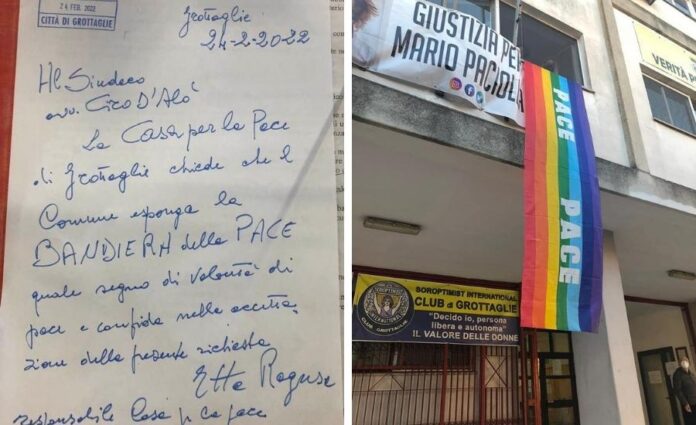 24 FEB. 2022
CITTÀ DI GROTTAGLIE
Grottaglie
24-2-2022
Al Sindaco
avv. Ciro D'Alò
La Casa per la Pace
di Grottaglie chiede che il
Comune esponga la
BANDIERA della PACE
quale segno di volontà di
pace e confida nella accetta-
zione della presente richiesta
Etta Ragusa
responsabile Casa p. la pace
GIUSTIZIA PER
MARIO PACIOLA
VERITÀ
PACE
PACE
SOROPTIMIST INTERNATIONAL
CLUB di GROTTAGLIE
"Decido io, persona
libera e autonoma"
IL VALORE DELLE DONNE
SOROPTIMIST
INTERNATIONAL
CLUB GROTTAGLIE